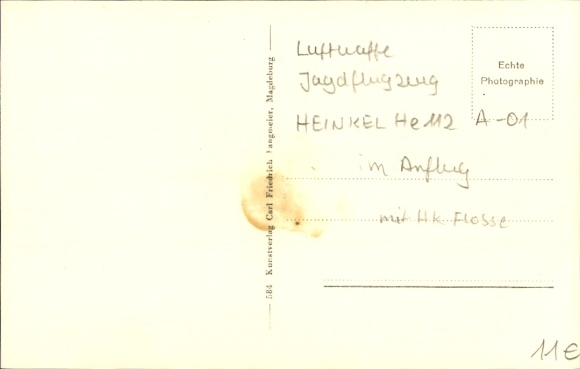 Luftwaffe
Jagdflugzeug
HEINKEL He 112 A-01
im Anflug
mit HK Flosse
Echte
Photographie
584 Kunstverlag Carl Friedrich Fangmeier, Magdeburg
11€